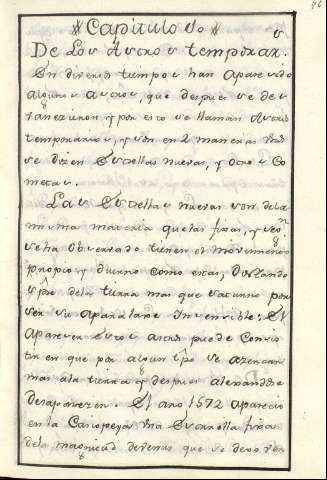 Capitulo Vo
De Los Astros temporar.
En diversos tiempos han aparecido
algunos astros, que despues se des
vanezieron, y por esto se llaman Astros
temporarios, y son en 2 maneras
se dizen Estrellas nuevas, y otros Co
metas.
Las Estrellas nuevas son de la
misma materia que las fixas, y
se ha observado tienen el movimiento
propio y diurno como estas,
de la tierra mas que saturno por
ser su aparalaxe invensible: El
aparecer estos astros puede consis
tir en que por algun tpo se azercan
mas a la tierra y despues alexandose
desaparezen. El año 1572 aparecio
en la Casiopeya una Estrella fixa
de la magnitud de venus que se